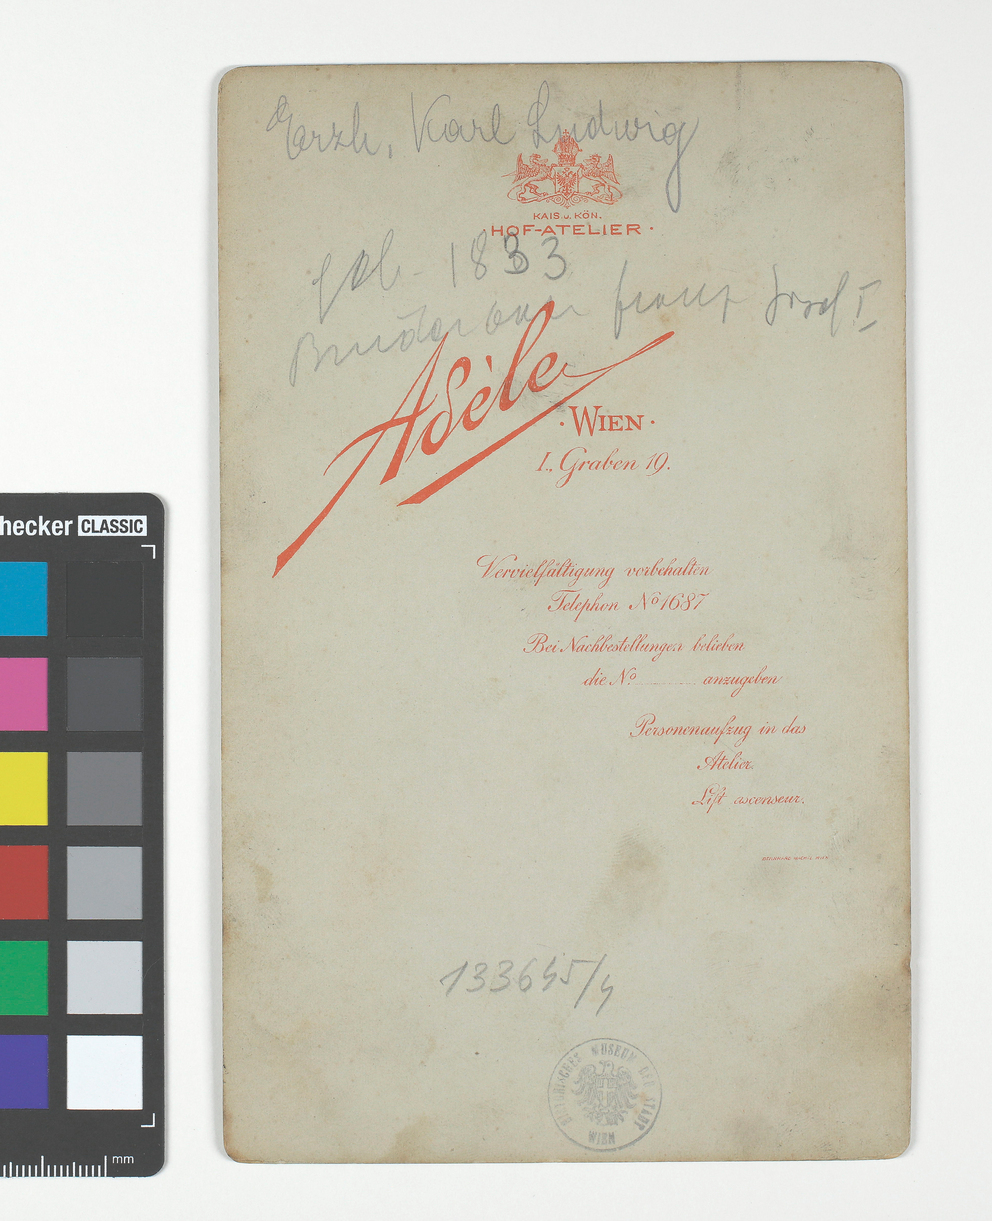 Erzh. Karl Ludwig
KAIS. u. KÖN.
HOF-ATELIER
geb. 1833
Bruder von Franz Josef I
Adèle
· WIEN ·
I., Graben 19.
Vervielfältigung vorbehalten
Telephon No 1687
Bei Nachbestellungen belieben
die No. anzugeben
Personenaufzug in das
Atelier.
Lift ascenseur.
133645/4
HISTORISCHES MUSEUM DER STADT
WIEN
hecker CLASSIC
mm